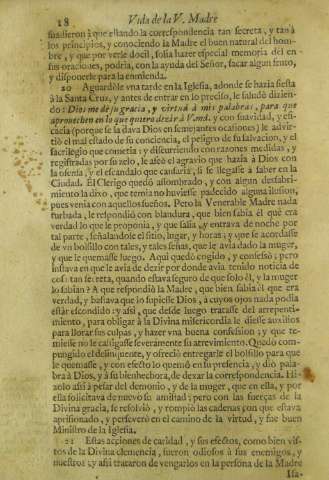 18 Vida de la V. Madre
suadieron à que estando la correspondencia tan secreta, y tan à
los principios, y conociendo la Madre el buen natural del hom-
bre, y que por verle docil, solia hazer especial memoria del en
sus oraciones, podria, con la ayuda del Señor, sacar algun fruto,
y disponerle para la enmienda.
20 Aguardòle vna tarde en la Iglesia, adonde se hazia fiesta
à la Santa Cruz, y antes de entrar en lo preciso, le saludò dizien-
do: Dios me dè su gracia, y virtud à mis palabras, para que
aprovechen en lo que quiero dezir à V.md. y con suavidad, y efi-
cacia (porque se la dava Dios en semejantes ocasiones) le advir-
tiò el mal estado de su conciencia, el peligro de su salvacion, y el
sacrilegio que cometia: y discurriendo con razones medidas, y
registradas por su zelo, le afeò el agravio que hazia à Dios con
la ofensa, y el escandalo que causaria, si se llegasse à saber en la
Ciudad. El Clerigo quedò assombrado, y con algun desabri-
miento la dixo, que temia no huviesse padecido alguna ilusion,
pues venia con aquellos sueños. Pero la Venerable Madre nada
turbada, le respondiò con blandura, que bien sabia èl que era
verdad lo que le proponia, y que salia, y entrava de noche por
tal parte, señalandole el sitio, lugar, y horas; y que se acordasse
de vn bolsillo con tales, y tales señas, que le avia dado la muger,
y que le quemasse luego. Aqui quedò cogido, y confesò; pero
instava en que le avia de dezir por donde avia tenido noticia de
cosa tan secreta, quando estava seguro de que solo èl, y la muger
lo sabian? A que respondiò la Madre, que bien sabia èl que era
verdad, y bastava que lo supiesse Dios, à cuyos ojos nada podia
estàr escondido: y assi, que desde luego tratasse del arrepenti-
miento, para obligar à la Divina misericordia le diesse auxilios
para llorar sus culpas, y hazer vna buena confession; y que te-
miesse no le castigasse severamente su atrevimiento. Quedò com-
pungido el delinquente, y ofreciò entregarle el bolsillo para que
le quemasse, y con efecto lo quemò en su presencia, y diò pala-
bra à Dios, y à su bienhechora, de dexar la correspondencia. Hi-
zolo assi à pesar del demonio, y de la muger, que en ella, y por
ella solicitava de nuevo su amistad; pero con las fuerças de la
Divina gracia, se resolviò, y rompiò las cadenas con que estava
aprisionado, y perseverò en el camino de la virtud, y fue buen
Ministro de la Iglesia.
21 Estas acciones de caridad, y sus efectos, como bien vis-
tos de la Divina clemencia, fueron odiosos à sus enemigos, y
nuestros; y assi trataron de vengarlos en la persona de la Madre
Isa-